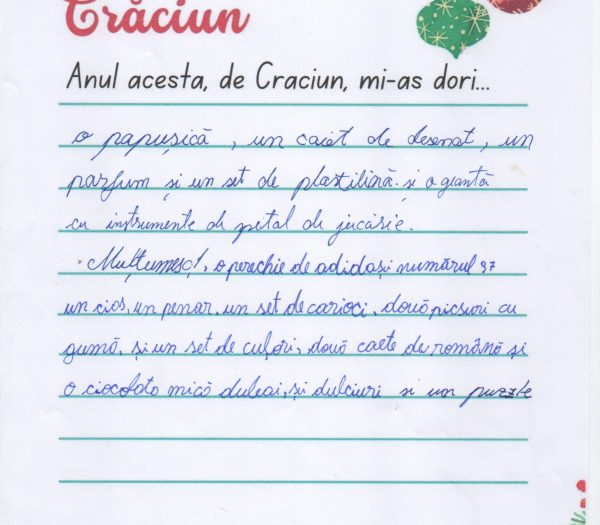 Crăciun
Anul acesta, de Craciun, mi-as dori...
o papușică, un caiet de desenat, un
parfum și un set de plastilină și o geantă
cu instrumente de pictat de jucărie.
Mulțumesc!, o perechie de adidași numărul 37
un cios, un penar, un set de carioci, două picsuri cu
gumă, și un set de culori, două caete de română și
o ciocolata mică dulceai, și dulciuri si un puzzle